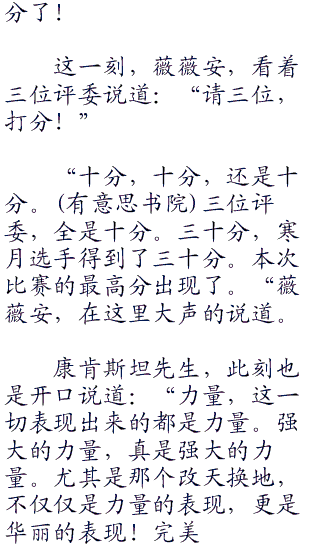 分了！
这一刻，薇薇安，看着
三位评委说道：“请三位，
打分！”
“十分，十分，还是十
分。(有意思书院)三位评
委，全是十分。三十分，寒
月选手得到了三十分。本次
比赛的最高分出现了。“薇
薇安，在这里大声的说道。
康肯斯坦先生，此刻也
是开口说道：“力量，这一
切表现出来的都是力量。强
大的力量，真是强大的力
量。尤其是那个改天换地，
不仅仅是力量的表现，更是
华丽的表现！完美